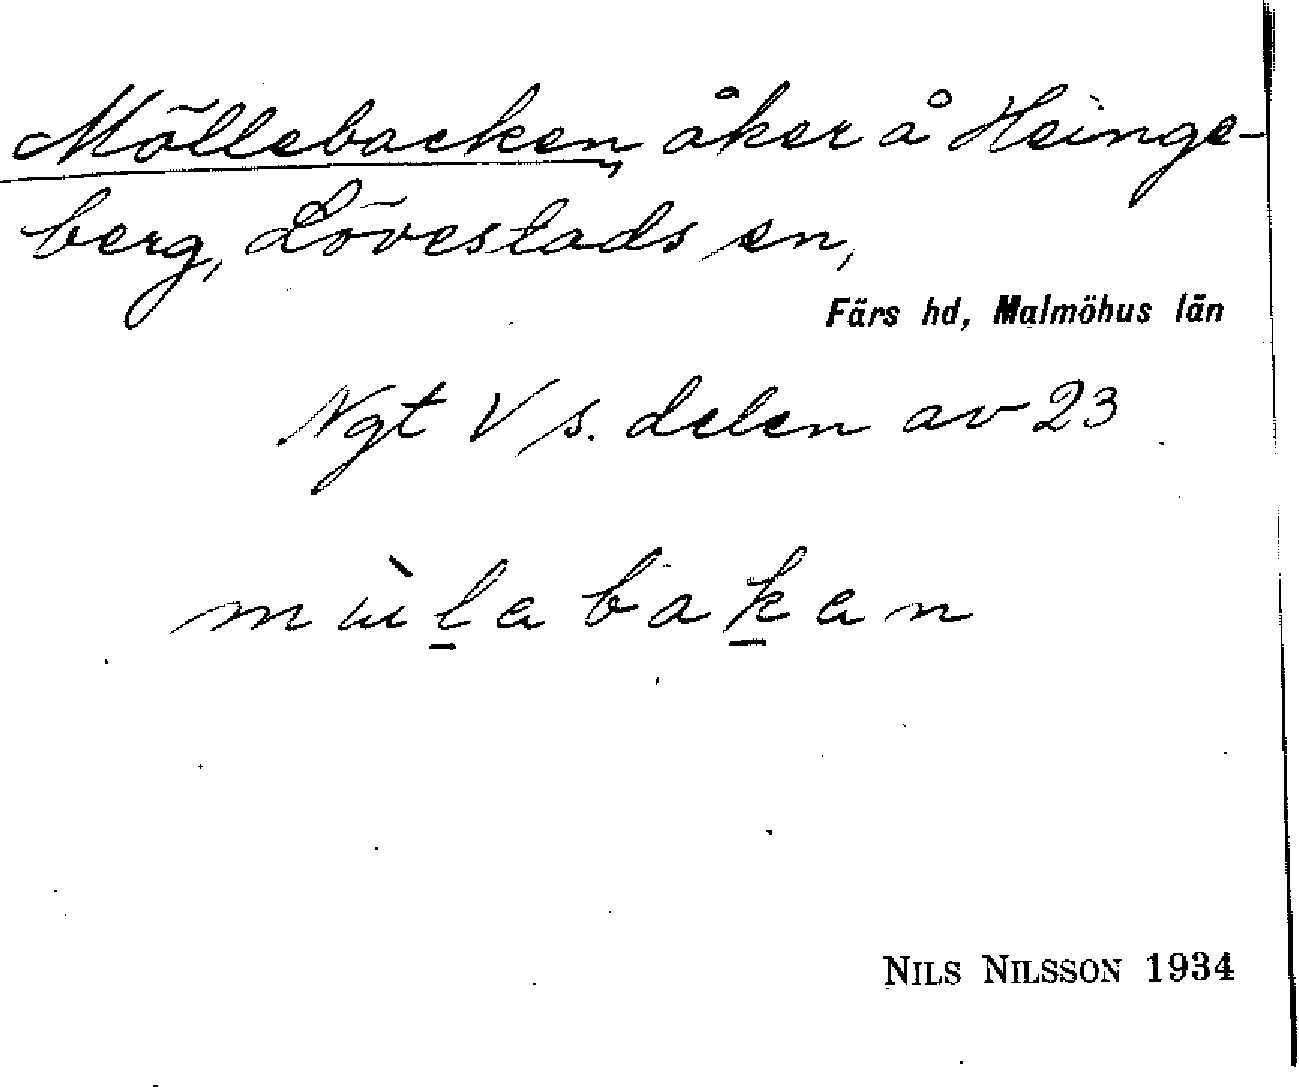 Möllebacken, åker å Heinge-
berg, Lövestads sn,
Färs hd, Malmöhus län
Ngt V s. delen av 23
NILS NILSSON 1934